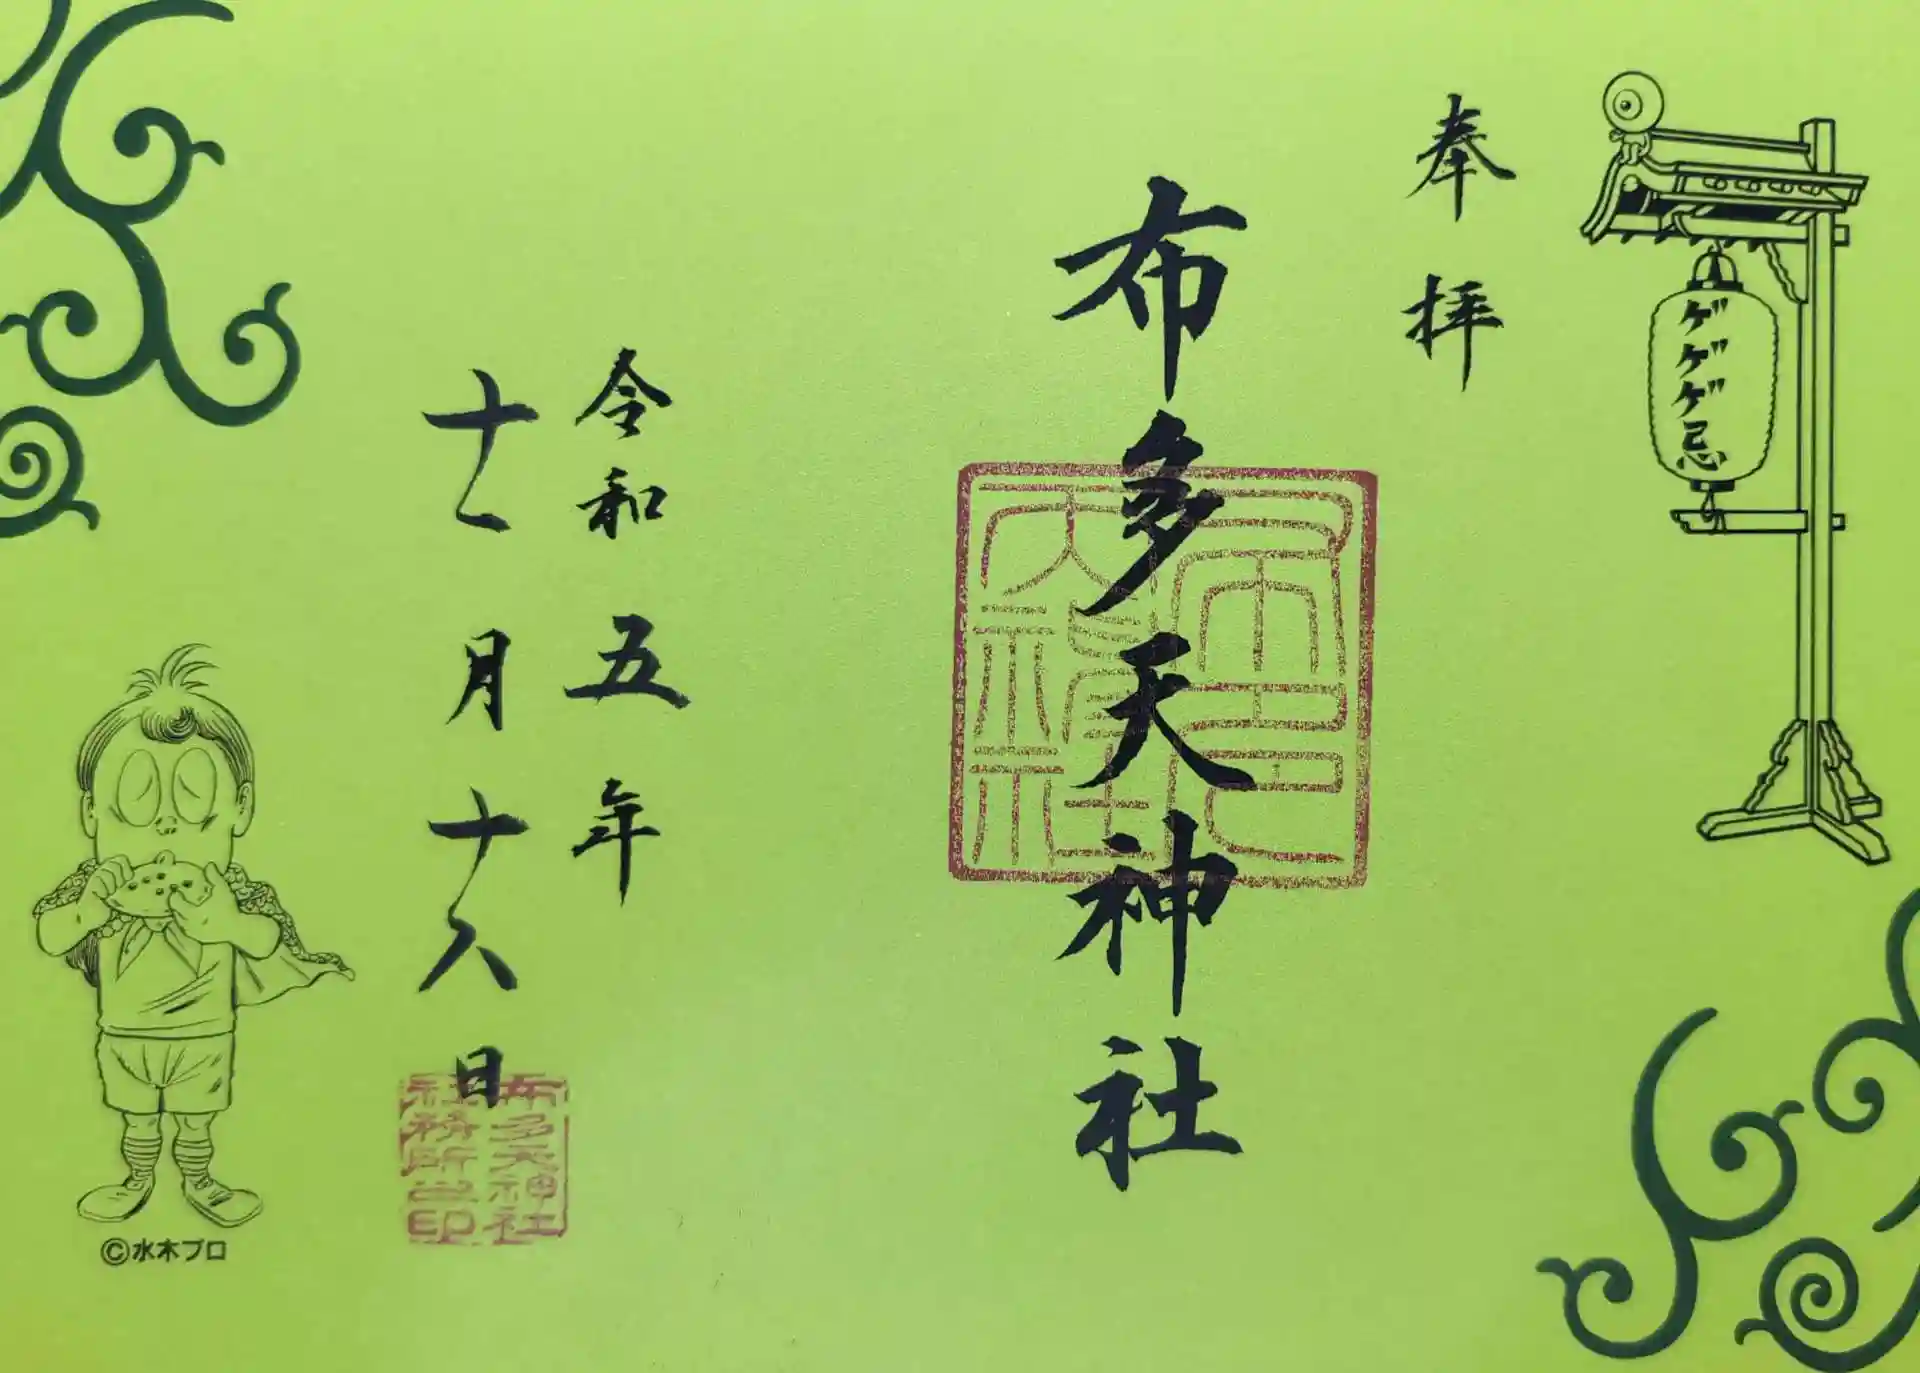 奉拝
ゲゲゲ忌
布多天神社
令和五年
十一月十八日
布多天神社
社務所之印
©水木プロ